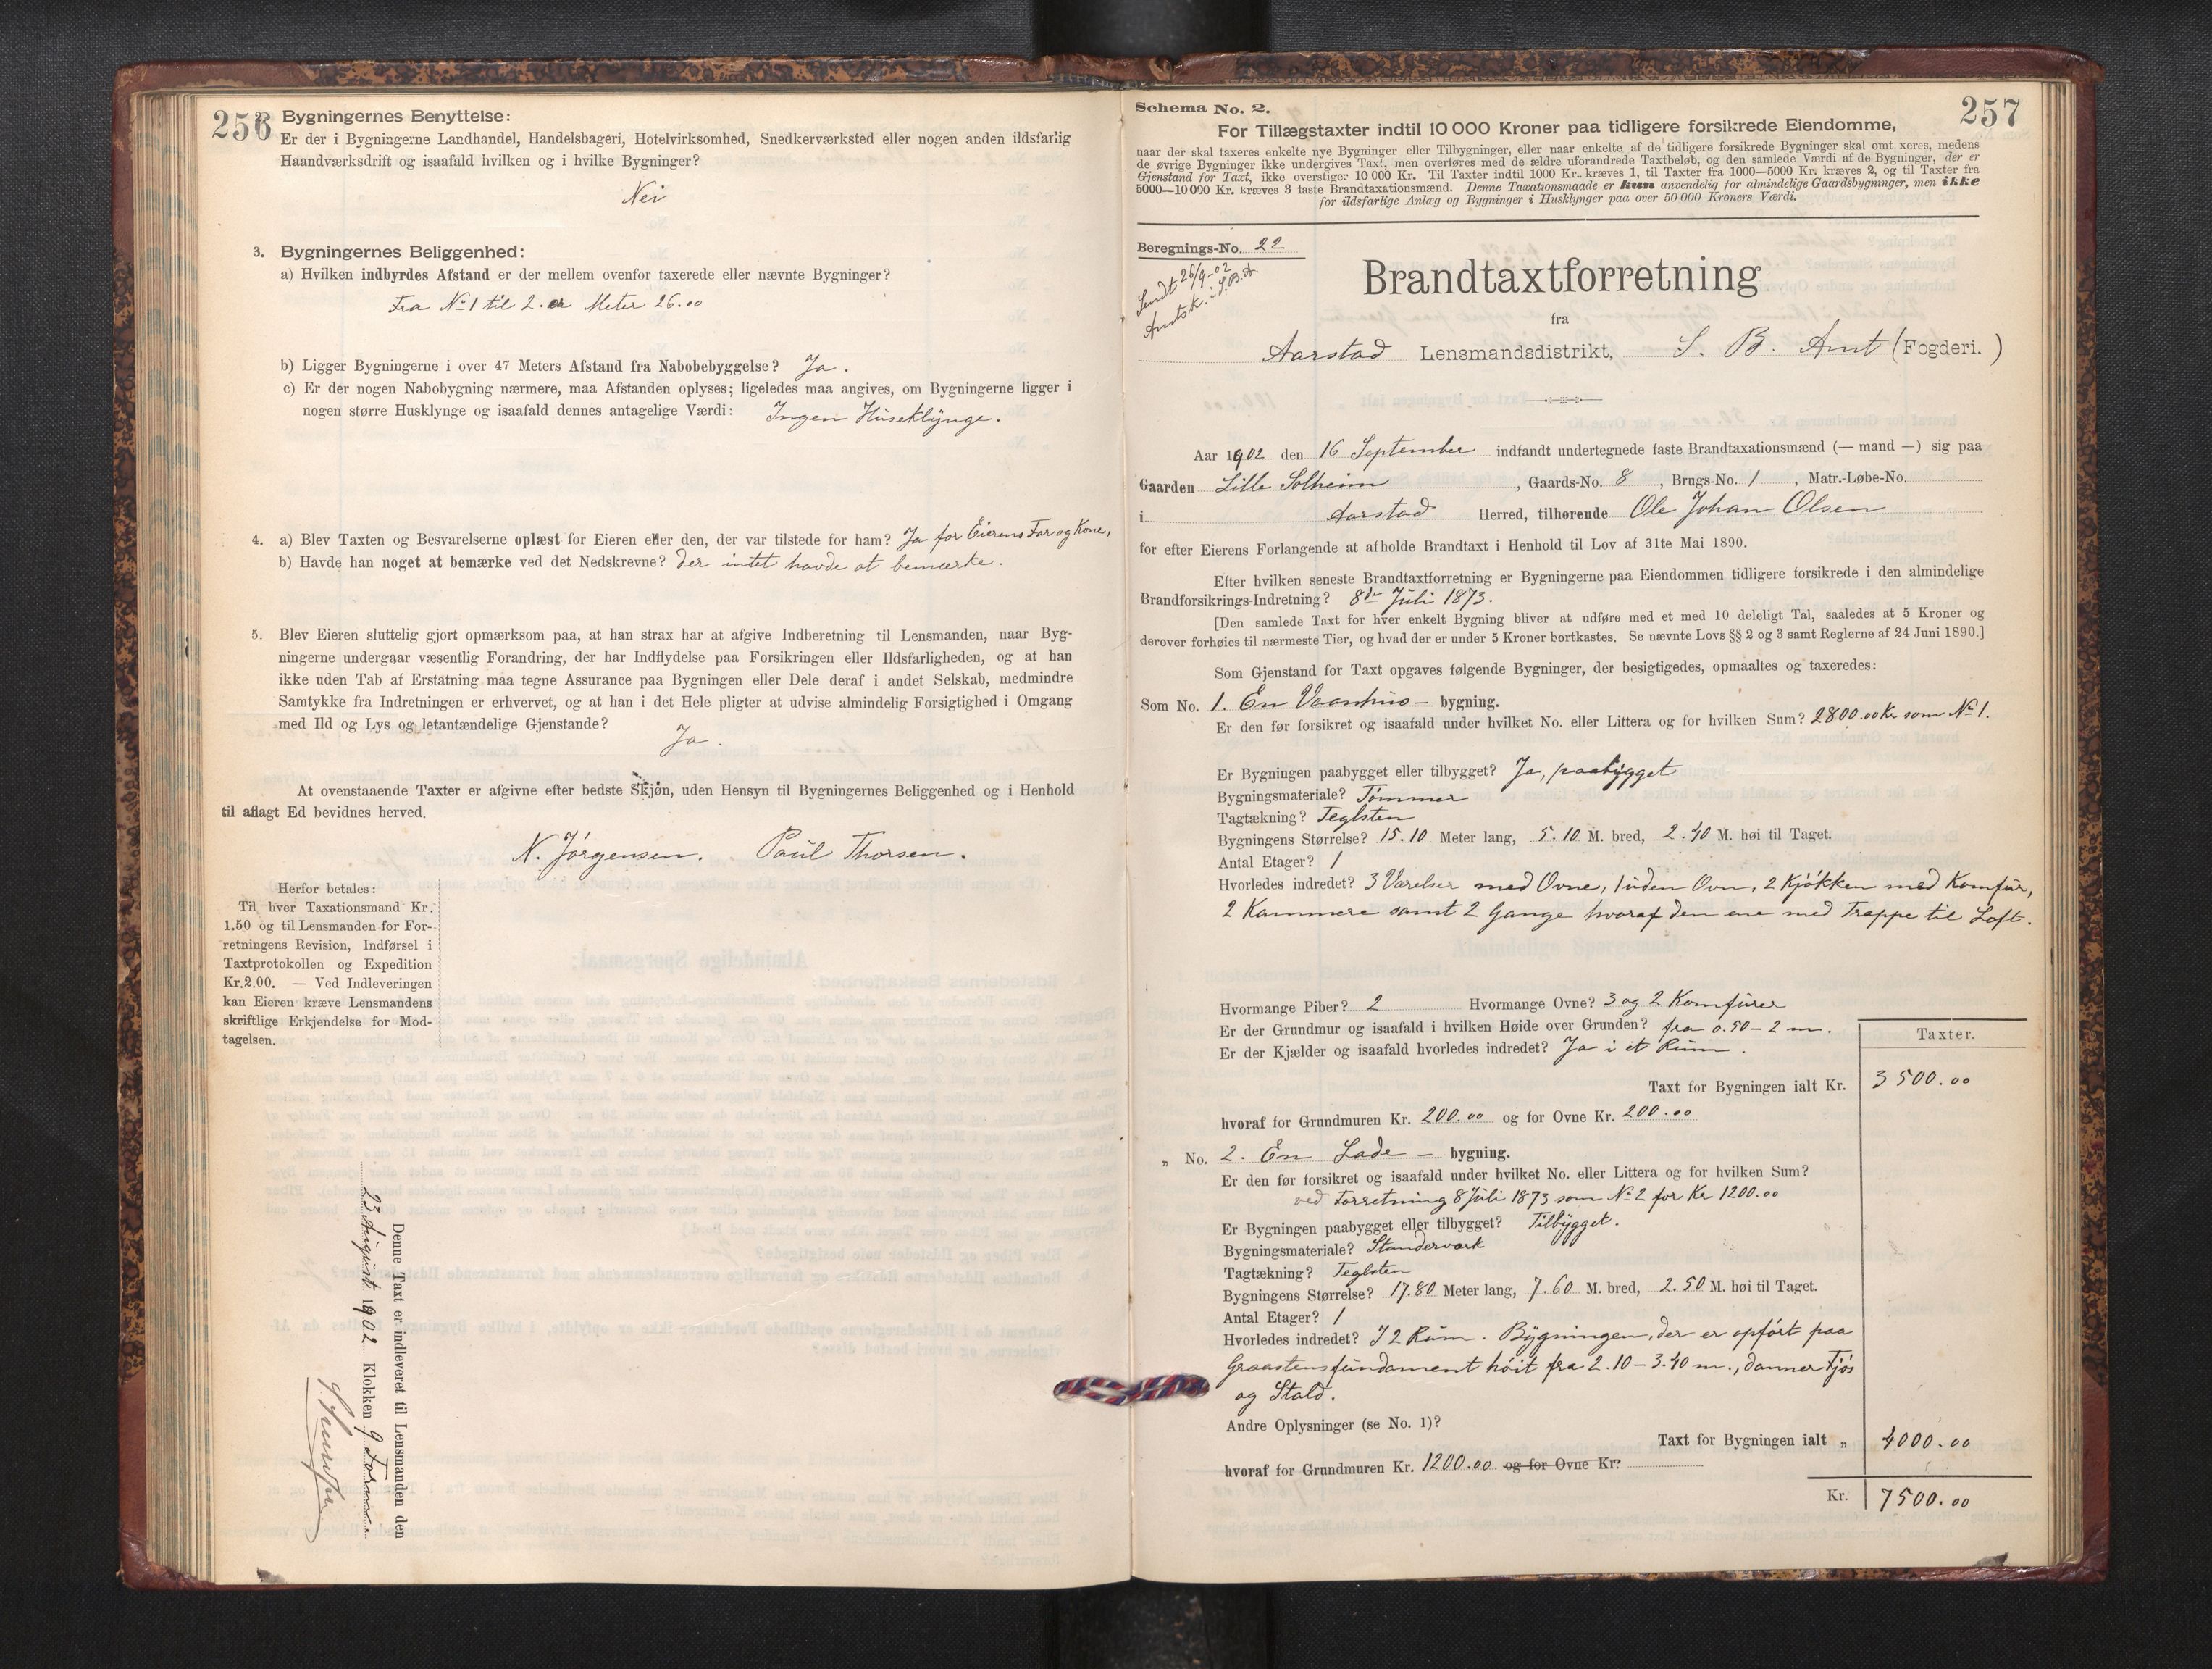 256
2. Bygningernes Benyttelse:
Er der i Bygningerne Landhandel, Handelsbageri, Hotelvirksomhed, Snedkerværksted eller nogen anden ildsfarlig
Haandværksdrift og isaafald hvilken og i hvilke Bygninger?
Nei
3. Bygningernes Beliggenhed:
a) Hvilken indbyrdes Afstand er der mellem ovenfor taxerede eller nævnte Bygninger?
Fra No 1 til 2. er Meter 26.00
b) Ligger Bygningerne i over 47 Meters Afstand fra Nabobebyggelse? Ja.
c) Er der nogen Nabobygning nærmere, maa Afstanden oplyses; ligeledes maa angives, om Bygningerne ligger i
nogen større Husklynge og isaafald dennes antagelige Værdi: Ingen Huseklynge.
4. a) Blev Taxten og Besvarelserne oplæst for Eieren eller den, der var tilstede for ham? Ja for Eierens Far og Kone,
b) Havde han noget at bemærke ved det Nedskrevne? der intet havde at bemærke.
5. Blev Eieren sluttelig gjort opmærksom paa, at han strax har at afgive Indberetning til Lensmanden, naar Byg-
ningerne undergaar væsentlig Forandring, der har Indflydelse paa Forsikringen eller Ildsfarligheden, og at han
ikke uden Tab af Erstatning maa tegne Assurance paa Bygningen eller Dele deraf i andet Selskab, medmindre
Samtykke fra Indretningen er erhvervet, og at han i det Hele pligter at udvise almindelig Forsigtighed i Omgang
med Ild og Lys og letantændelige Gjenstande?
Ja.
At ovenstaaende Taxter er afgivne efter bedste Skjøn, uden Hensyn til Bygningernes Beliggenhed og i Henhold
til aflagt Ed bevidnes herved.
N. Jørgensen. Paul Thorsen.
Herfor betales:
Til hver Taxationsmand Kr.
1.50 og til Lensmanden for For-
retningens Revision, Indførsel i
Taxtprotokollen og Expedition
Kr. 2.00. — Ved Indleveringen
kan Eieren kræve Lensmandens
skriftlige Erkjendelse for Mod-
tagelsen.
Denne Taxt er indleveret til Lensmanden den
23 August 1902 Klokken 9 Form.
257
Schema No. 2.
For Tillægstaxter indtil 10 000 Kroner paa tidligere forsikrede Eiendomme,
naar der skal taxeres enkelte nye Bygninger eller Tilbygninger, eller naar enkelte af de tidligere forsikrede Bygninger skal omt xeres, medens
de øvrige Bygninger ikke undergives Taxt, men overføres med de ældre uforandrede Taxtbeløb, og den samlede Værdi af de Bygninger, der er
Gjenstand for Taxt, ikke overstiger 10 000 Kr. Til Taxter indtil 1000 Kr. kræves 1, til Taxter fra 1000—5000 Kr. kræves 2, og til Taxter fra
5000—10 000 Kr. kræves 3 faste Brandtaxationsmænd. Denne Taxationsmaade er kun anvendelig for almindelige Gaardsbygninger, men ikke
for ildsfarlige Anlæg og Bygninger i Husklynger paa over 50 000 Kroners Værdi.
Beregnings-No. 22
Sendt 26/9-02
Amtsk. i S.B.A
Brandtaxtforretning
fra
Aarstad Lensmandsdistrikt, S. B. Amt (Fogderi.)
Aar 1902 den 16 September indfandt undertegnede faste Brandtaxationsmænd (— mand —) sig paa
Gaarden Lille Solheim, Gaards-No. 8, Brugs-No. 1, Matr.-Løbe-No.
i Aarstad Herred, tilhørende Ole Johan Olsen
for efter Eierens Forlangende at afholde Brandtaxt i Henhold til Lov af 31te Mai 1890.
Efter hvilken seneste Brandtaxtforretning er Bygningerne paa Eiendommen tidligere forsikrede i den almindelige
Brandforsikrings-Indretning? 8de Juli 1873.
[Den samlede Taxt for hver enkelt Bygning bliver at udføre med et med 10 deleligt Tal, saaledes at 5 Kroner og
derover forhøies til nærmeste Tier, og hvad der er under 5 Kroner bortkastes. Se nævnte Lovs §§ 2 og 3 samt Reglerne af 24 Juni 1890.]
Som Gjenstand for Taxt opgaves følgende Bygninger, der besigtigedes, opmaaltes og taxeredes:
Som No. 1. En Vaanhus – bygning.
Er den før forsikret og isaafald under hvilket No. eller Littera og for hvilken Sum? 2800.00 Kr som No 1.
Er Bygningen paabygget eller tilbygget? Ja, paabygget
Bygningsmateriale? Tømmer
Tagtækning? Teglsten
Bygningens Størrelse? 15.10 Meter lang, 5.10 M. bred, 2.40 M. høi til Taget.
Antal Etager? 1
Hvorledes indredet? 3 Værelser med Ovne, 1 uden Ovn, 2 Kjøkken med Komfur,
2 Kammere samt 2 Gange hvoraf den ene med Trappe til Loft.
Hvormange Piber? 2 Hvormange Ovne? 3 og 2 Komfurer
Er der Grundmur og isaafald i hvilken Høide over Grunden? fra 0.50 – 2 m.
Er der Kjælder og isaafald hvorledes indredet? Ja i et Rum.
Taxter.
Taxt for Bygningen ialt Kr. 3500.00
hvoraf for Grundmuren Kr. 200.00 og for Ovne Kr. 200.00
„ No. 2. En Lade – bygning.
Er den før forsikret og isaafald under hvilket No. eller Littera og for hvilken Sum?
ved Forretning 8 Juli 1873 som No 2 for Kr 1200.00
Er Bygningen paabygget eller tilbygget? Tilbygget.
Bygningsmateriale? Standerværk
Tagtækning? Teglsten
Bygningens Størrelse? 17.80 Meter lang, 7.60 M. bred, 2.50 M. høi til Taget.
Antal Etager? 1
Hvorledes indredet? I 2 Rum. Bygningen, der er opført paa
Graastensfundament høit fra 2.10 – 3.40 m., danner Fjøs
og Stald.
Andre Oplysninger (se No. 1)?
Taxt for Bygningen ialt „ 4000.00
hvoraf for Grundmuren Kr. 1200.00 og for Ovne Kr?
Kr. 7500.00